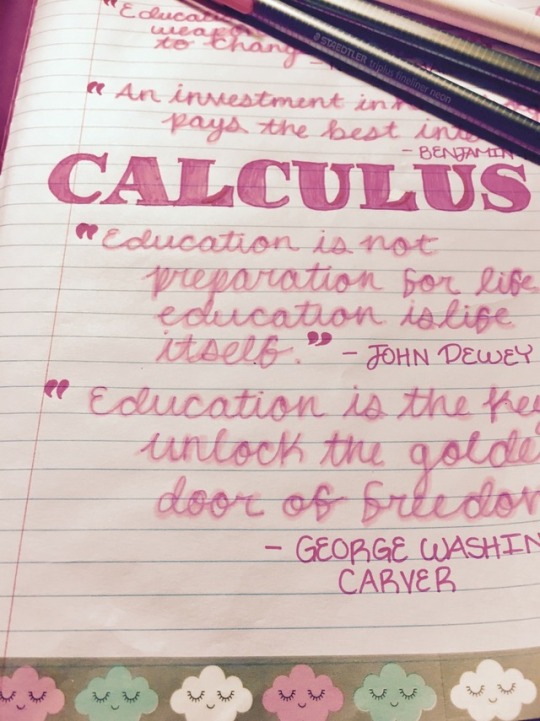 "Educa
weapo
to chang
STAEDTLER triplus fineliner neon
"An investment in k
pays the best inte
- BENJAMIN
CALCULUS
"Education is not
preparation for life
education is life
itself." - JOHN DEWEY
"Education is the key
unlock the golde
door of freedom
- GEORGE WASHIN
CARVER